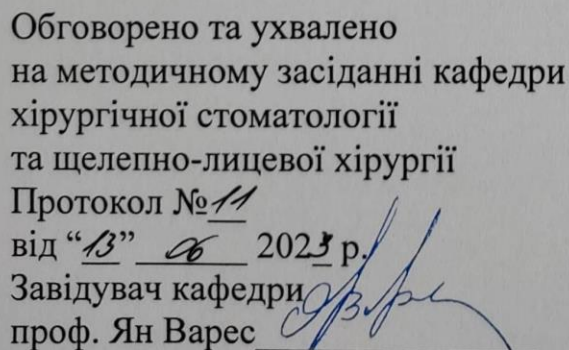 Обговорено та ухвалено
на методичному засіданні кафедри
хірургічної стоматології
та щелепно-лицевої хірургії
Протокол №11
від “13” 06 2023 р.
Завідувач кафедри
проф. Ян Варес